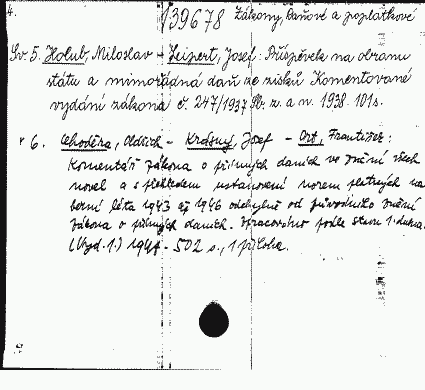 4.
139678 Zákony, Daňové a poplatkové
Sv. 5. Holub, Miloslav - Zeipert, Josef: Příspěvek na obranu
státu a mimořádná daň ze zisků Komentované
vydání zákona č. 247/1937 Sb. z. a n. 1938. 101 s.
" 6. Lhoděra, Oldřich - Krásný, Josef - Ort, František:
Komentář zákona o přímých daních ve znění všech
novel a s přehledem ustanovení norem platných na
berní léta 1943 až 1946 odchylně od původního znění
zákona o přímých daních. Zpracováno podle stavu 1. dubna.
(Vyd. 1.) 1947 - 502 s., 1 příloha.